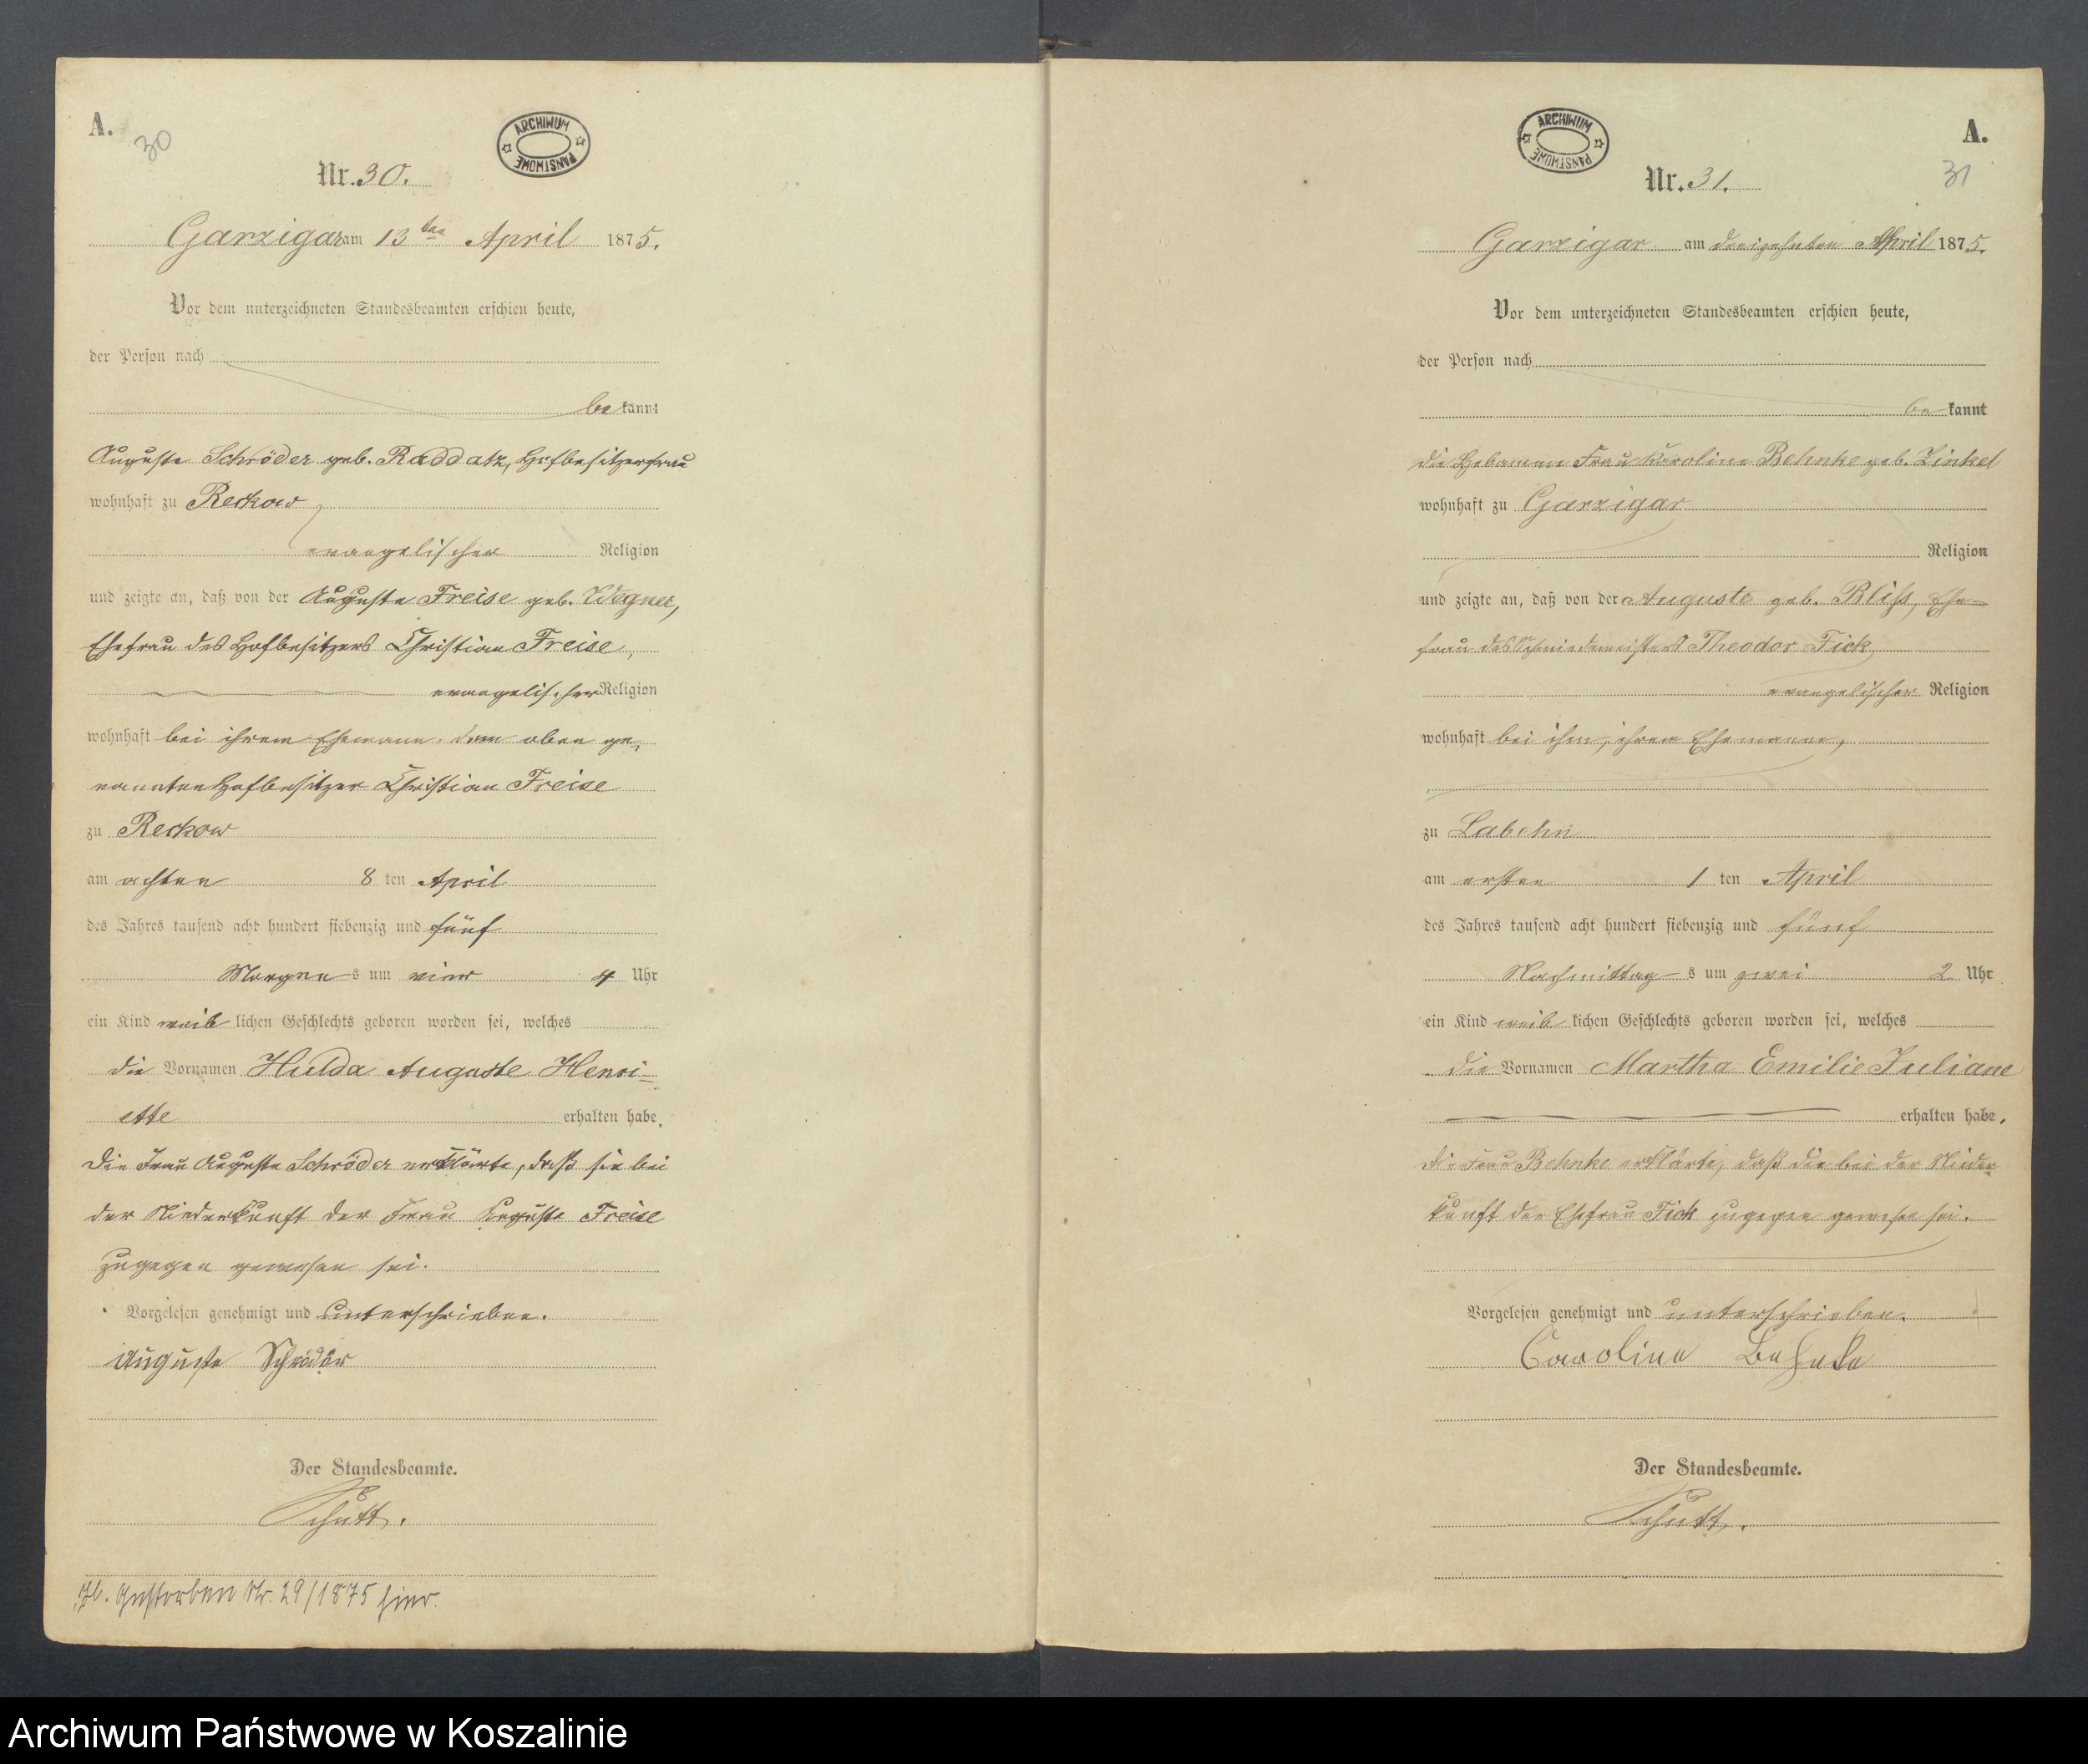 A.
30
ARCHIWUM PAŃSTWOWE
Nr. 30.
Garzigar am 13ten April 1875.
Vor dem unterzeichneten Standesbeamten erschien heute,
der Person nach
be kannt
Auguste Schröder geb. Raddatz, Hofbesitzerfrau
wohnhaft zu Reckow
evangelischer Religion
und zeigte an, daß von der Auguste Freise geb. Wegner,
Ehefrau des Hofbesitzers Christian Freise,
evangelischer Religion
wohnhaft bei ihrem Ehemann dem oben ge-
nannten Hofbesitzer Christian Freise
zu Reckow
am achten 8 ten April
des Jahres tausend acht hundert siebenzig und fünf
Morgen s um vier 4 Uhr
ein Kind weib lichen Geschlechts geboren worden sei, welches
die Vornamen Hulda Auguste Henri-
ette erhalten habe.
Die Frau Auguste Schröder erklärte, daß sie bei
der Niederkunft der Frau Auguste Freise
zugegen gewesen sei.
Vorgelesen genehmigt und unterschrieben.
Auguste Schröder
Der Standesbeamte.
Schutt.
Gestorben Nr. 29/1875 hier.
ARCHIWUM PAŃSTWOWE
A.
31
Nr. 31.
Garzigar am dreizehnten April 1875.
Vor dem unterzeichneten Standesbeamten erschien heute,
der Person nach
be kannt
die Hebamme Frau Karoline Behnke geb. Zinkel
wohnhaft zu Garzigar
Religion
und zeigte an, daß von der Auguste geb. Bliß, Ehe-
frau des Schmiedemeisters Theodor Fick
evangelischer Religion
wohnhaft bei ihm, ihrem Ehemanne,
zu Labehn
am ersten 1 ten April
des Jahres tausend acht hundert siebenzig und fünf
Nachmittag s um zwei 2 Uhr
ein Kind weib lichen Geschlechts geboren worden sei, welches
die Vornamen Martha Emilie Juliane
erhalten habe.
Die Frau Behnke erklärte, daß die bei der Nieder-
kunft der Ehefrau Fick zugegen gewesen sei.
Vorgelesen genehmigt und unterschrieben.
Caroline Behnke
Der Standesbeamte.
Schutt.
Archiwum Państwowe w Koszalinie